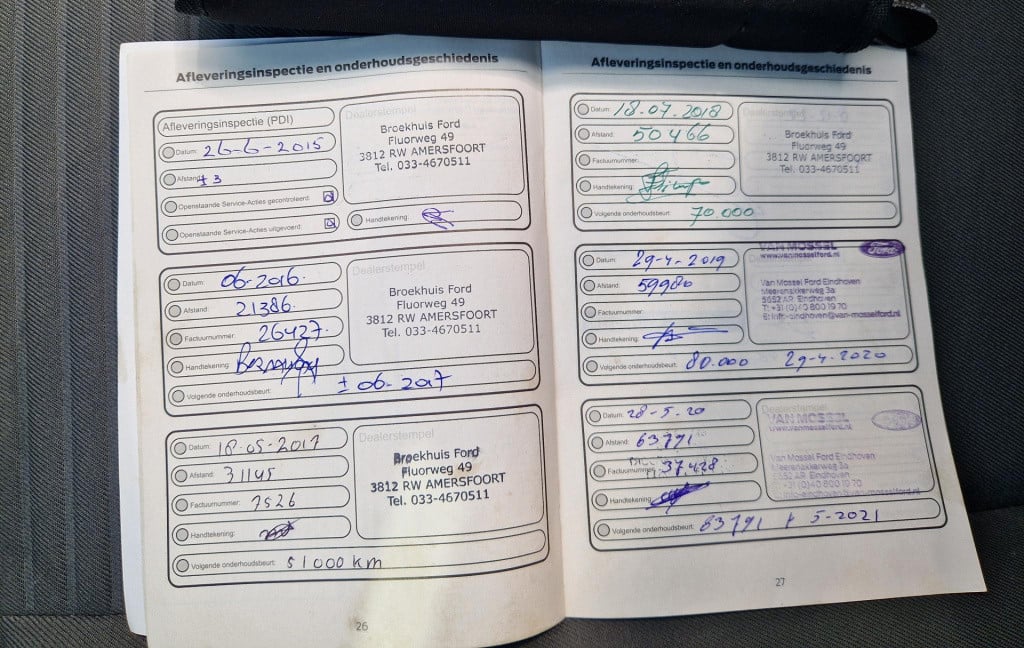 Afleveringsinspectie en onderhoudsgeschiedenis
Afleveringsinspectie (PDI)
Datum: 26-6-2015
Afstand: ± 3
Openstaande Service-Acties gecontroleerd:
Openstaande Service-Acties uitgevoerd:
Dealerstempel
Broekhuis Ford
Fluorweg 49
3812 RW AMERSFOORT
Tel. 033-4670511
Handtekening:
Datum: 06-2016.
Afstand: 21386.
Factuurnummer: 26427.
Handtekening:
Dealerstempel
Broekhuis Ford
Fluorweg 49
3812 RW AMERSFOORT
Tel. 033-4670511
Volgende onderhoudsbeurt: ± 06-2017
Datum: 18-05-2017
Afstand: 31145
Factuurnummer: 7526
Handtekening:
Dealerstempel
Broekhuis Ford
Fluorweg 49
3812 RW AMERSFOORT
Tel. 033-4670511
Volgende onderhoudsbeurt: 51000 km
26
Afleveringsinspectie en onderhoudsgeschiedenis
Datum: 18.07.2018
Afstand: 50466
Factuurnummer:
Handtekening:
Dealerstempel
Broekhuis Ford
Fluorweg 49
3812 RW AMERSFOORT
Tel. 033-4670511
Volgende onderhoudsbeurt: 70.000
Datum: 29-4-2019
Afstand: 59980
Factuurnummer:
Handtekening:
VAN MOSSEL
www.vanmosselford.nl
Ford
Van Mossel Ford Eindhoven
Meerenakkerweg 3a
5652 AR Eindhoven
T: +31 (0)40 800 19 70
E: info-eindhoven@van-mosselford.nl
Volgende onderhoudsbeurt: 80.000 29-4-2020
Datum: 28-5-20
Afstand: 63791
Factuurnummer: 37.428
Handtekening:
Dealerstempel
VAN MOSSEL
www.vanmosselford.nl
Van Mossel Ford Eindhoven
Meerenakkerweg 3a
5652 AR Eindhoven
T: +31 (0)40 800 19 70
info-eindhoven@van-mosselford.nl
Volgende onderhoudsbeurt: 83791 5-2021
27